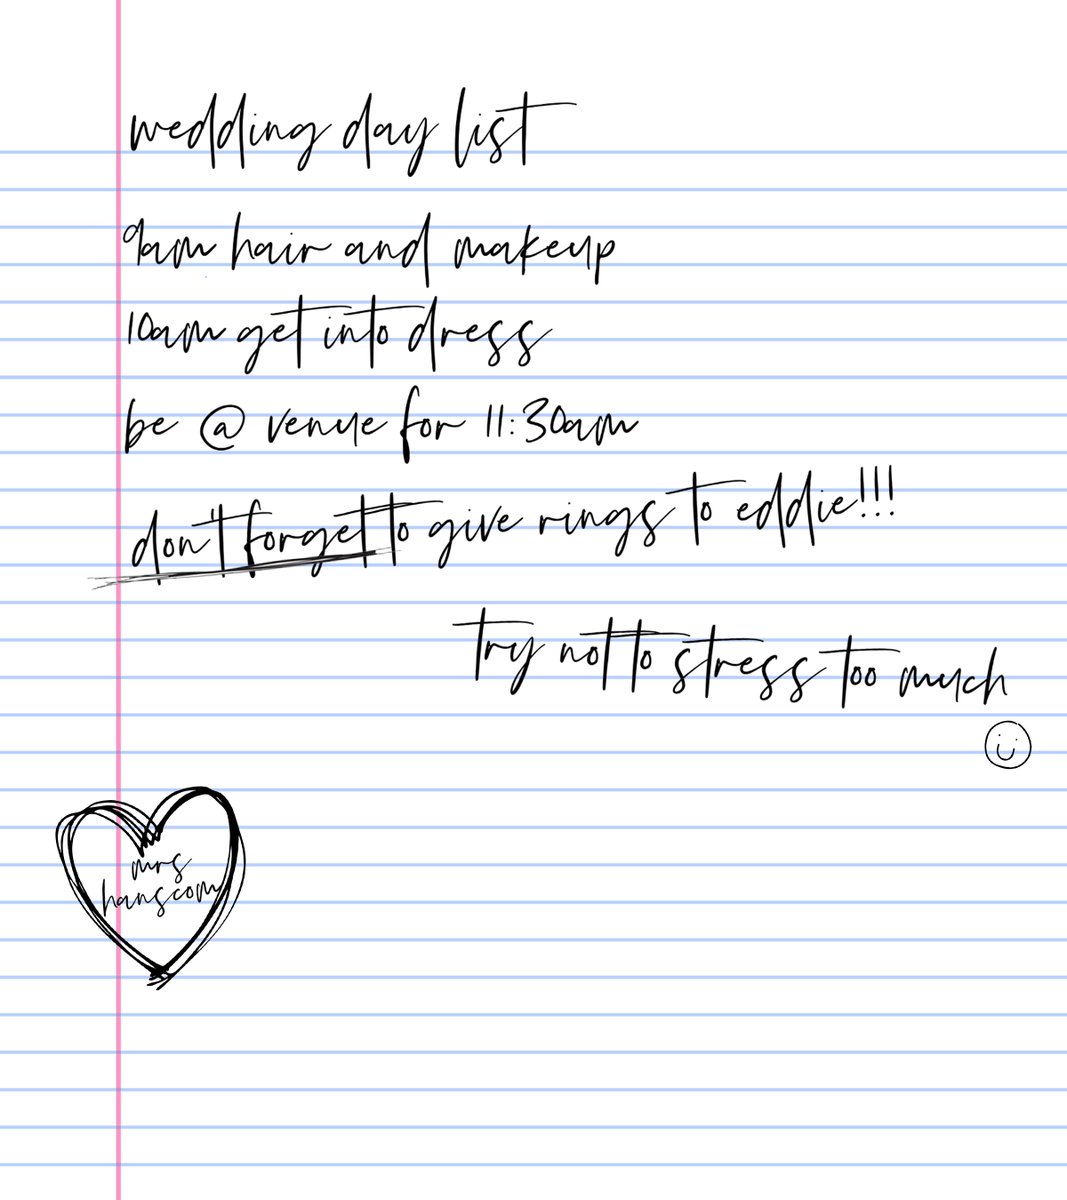 wedding day list
9am hair and makeup
10am get into dress
be @ venue for 11:30am
don't forget to give rings to eddie!!!
try not to stress too much
mrs
hanscom